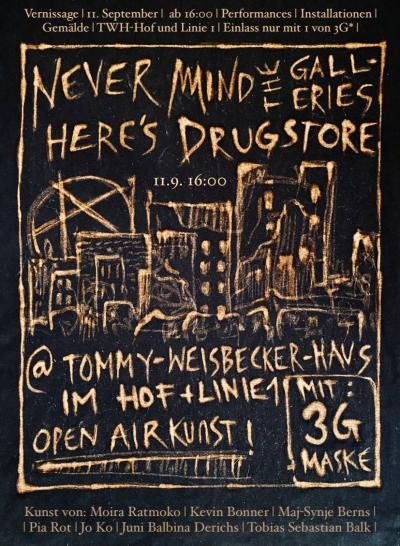 Vernissage | 11. September | ab 16:00 | Performances | Installationen |
Gemälde | TWH-Hof und Linie 1 | Einlass nur mit 1 von 3G* |
NEVER MIND THE GALL-
ERIES
HERE'S DRUGSTORE
11.9. 16:00
@ TOMMY-WEISBECKER-HAUS
IM HOF + LINIE 1
OPEN AIR KUNST!
MIT:
3G
+ MASKE
Kunst von: Moira Ratmoko | Kevin Bonner | Maj-Synje Berns |
| Pia Rot | Jo Ko | Juni Balbina Derichs | Tobias Sebastian Balk |